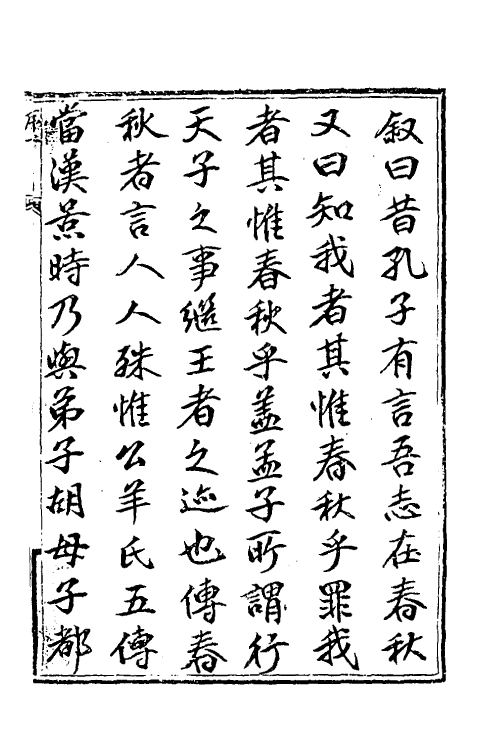 叙曰昔孔子有言吾志在春秋
又曰知我者其惟春秋乎罪我
者其惟春秋乎盖孟子所謂行
天子之事繼王者之迹也傳春
秋者言人人殊惟公羊氏五傳
當漢景時乃與弟子胡毋子都